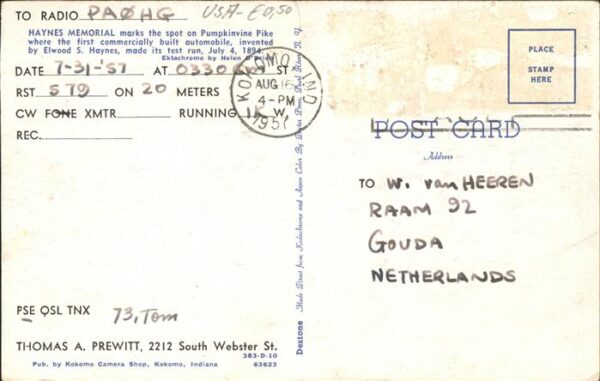 TO RADIO PAØHG USA-£0,50
HAYNES MEMORIAL marks the spot on Pumpkinvine Pike
where the first commercially built automobile, invented
by Elwood S. Haynes, made its test run, July 4, 1894.
Ektachrome by Helen O'Brien
DATE 7-31-'57 AT 0330 ST
RST 579 ON 20 METERS
CW FONE XMTR. RUNNING W.
REC.
KOKOMO IND
AUG 16
4-PM
1957
PLACE
STAMP
HERE
POST CARD
Address
TO W. van HEEREN
RAAM 92
GOUDA
NETHERLANDS
PSE QSL TNX 73, Tom
THOMAS A. PREWITT, 2212 South Webster St.
383-D-10
Pub. by Kokomo Camera Shop, Kokomo, Indiana 63623
Dextone Made Direct from Kodachrome and Ansco Color By Dexter Press, Pearl River, N. Y.